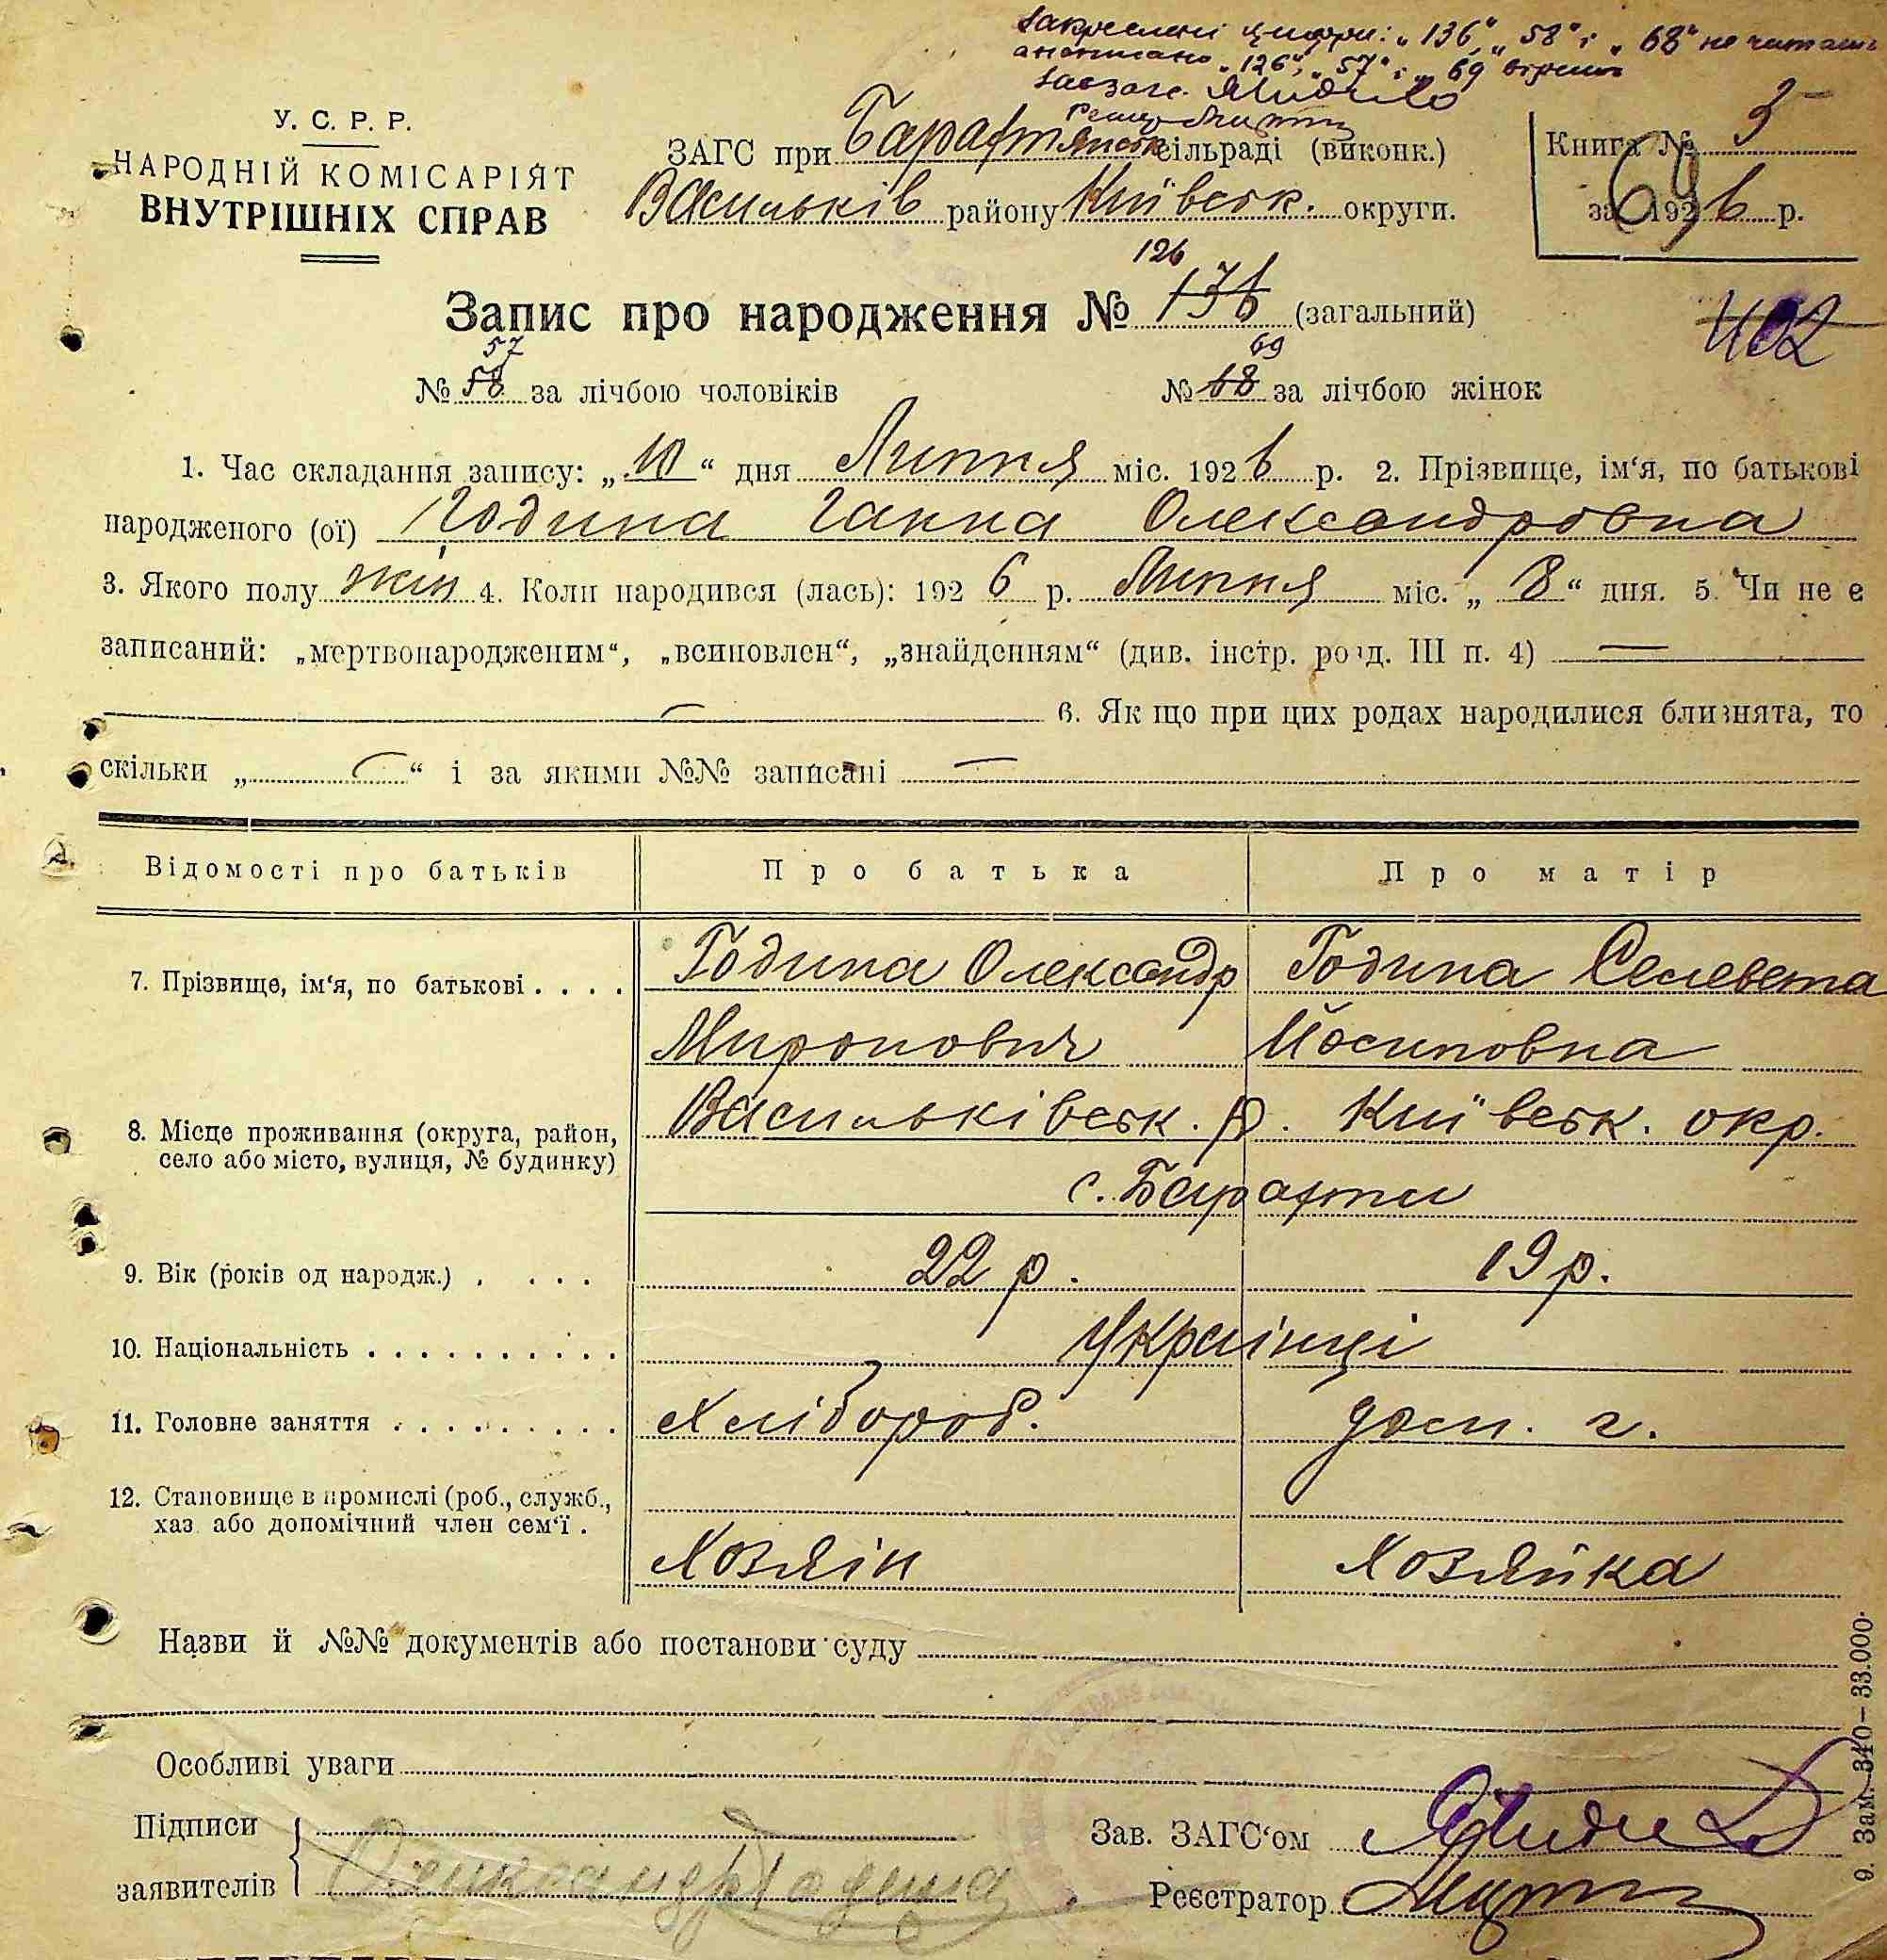 закреслені цифри: „136“, „58“ і „68“ не читать
„126“, „57“ і „69“ вірним
Завзагс.
У. С. Р. Р.
НАРОДНІЙ КОМІСАРІЯТ
ВНУТРІШНІХ СПРАВ
ЗАГС при Барахтянськ сільраді (виконк.)
Васильків району Київськ. округи.
Книга № 3
за 1926 р.
69
402
126
Запис про народження № 136 (загальний)
57 69
№ 58 за лічбою чоловіків № 68 за лічбою жінок
1. Час складання запису: „10“ дня Липня міс. 1926 р. 2. Прізвище, ім‘я, по батькові
народженого (ої) Година Ганна Олександровна
3. Якого полу жін 4. Коли народився (лась): 1926 р. Липня міс. „8“ дня. 5. Чи не є
записаний: „мертвонародженим“, „всиновлен“, „знайденням“ (див. інстр. розд. III п. 4) —
— 6. Якщо при цих родах народилися близнята, то
скільки „—“ і за якими №№ записані —
Відомості про батьків Про батька Про матір
7. Прізвище, ім‘я, по батькові . . . . Година Олександр Година Селевета
Миронович Йосиповна
8. Місце проживання (округа, район, Васильківськ. р. Київськ. окр.
село або місто, вулиця, № будинку)
с. Барахти
9. Вік (років од народж.) . . . . 22 р. 19 р.
10. Національність . . . . . . . . . . Українці
11. Головне заняття . . . . . . . . . Хлібороб. дом. г.
12. Становище в промислі (роб., служб.,
хаз. або допомічний член сем‘ї .
Хозяін Хозяйка
Назви й №№ документів або постанови суду
Особливі уваги
Підписи
заявителів Олександр Година
Зав. ЗАГС‘ом
Реєстратор
9. Зам. 340—33.000.